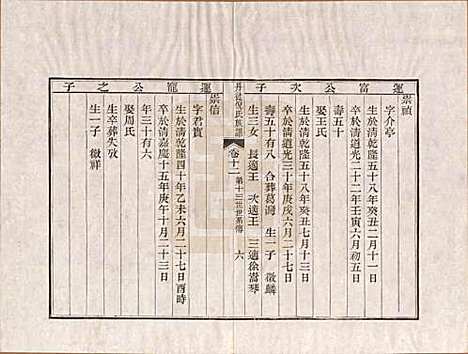 運富公次子
崇禎
字介亭
生於清乾隆五十八年癸丑二月十一日
卒於清道光二十二年壬寅六月初五日
壽五十
娶王氏
生於清乾隆五十八年癸丑七月十三日
卒於清道光三十年庚戌六月二十七日
壽五十有八 合葬葛灣 生一子 徵麟
生三女 長適王 次適王 三適徐嵩琴
氏族譜
卷十二
第十三世世系傳
六
運寵公之子
崇信
字君實
生於清乾隆四十年乙未六月二十七日酉時
卒於清嘉慶十五年庚午十月二十三日
年三十有六
娶周氏
生卒葬失攷
生一子 徵祥